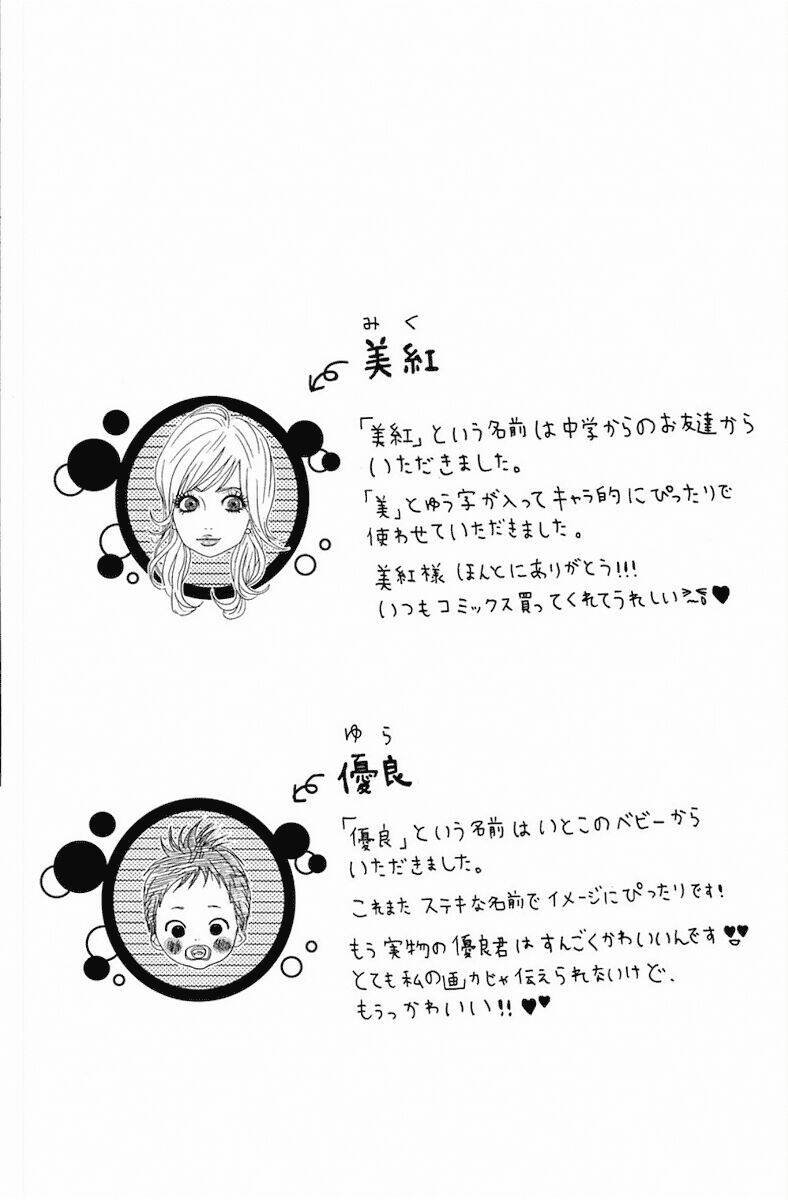 みく
美紅
「美紅」という名前は中学からのお友達から
いただきました。
「美」とゆう字が入ってキャラ的にぴったりで
使わせていただきました。
美紅様 ほんとにありがとう!!!
いつもコミックス買ってくれてうれしい♥
ゆら
優良
「優良」という名前はいとこのベビーから
いただきました。
これまた ステキな名前でイメージにぴったりです!
もう実物の優良君はすんごくかわいいんです♥♥
とても私の画力じゃ伝えられないけど、
もうっかわいい!!♥♥